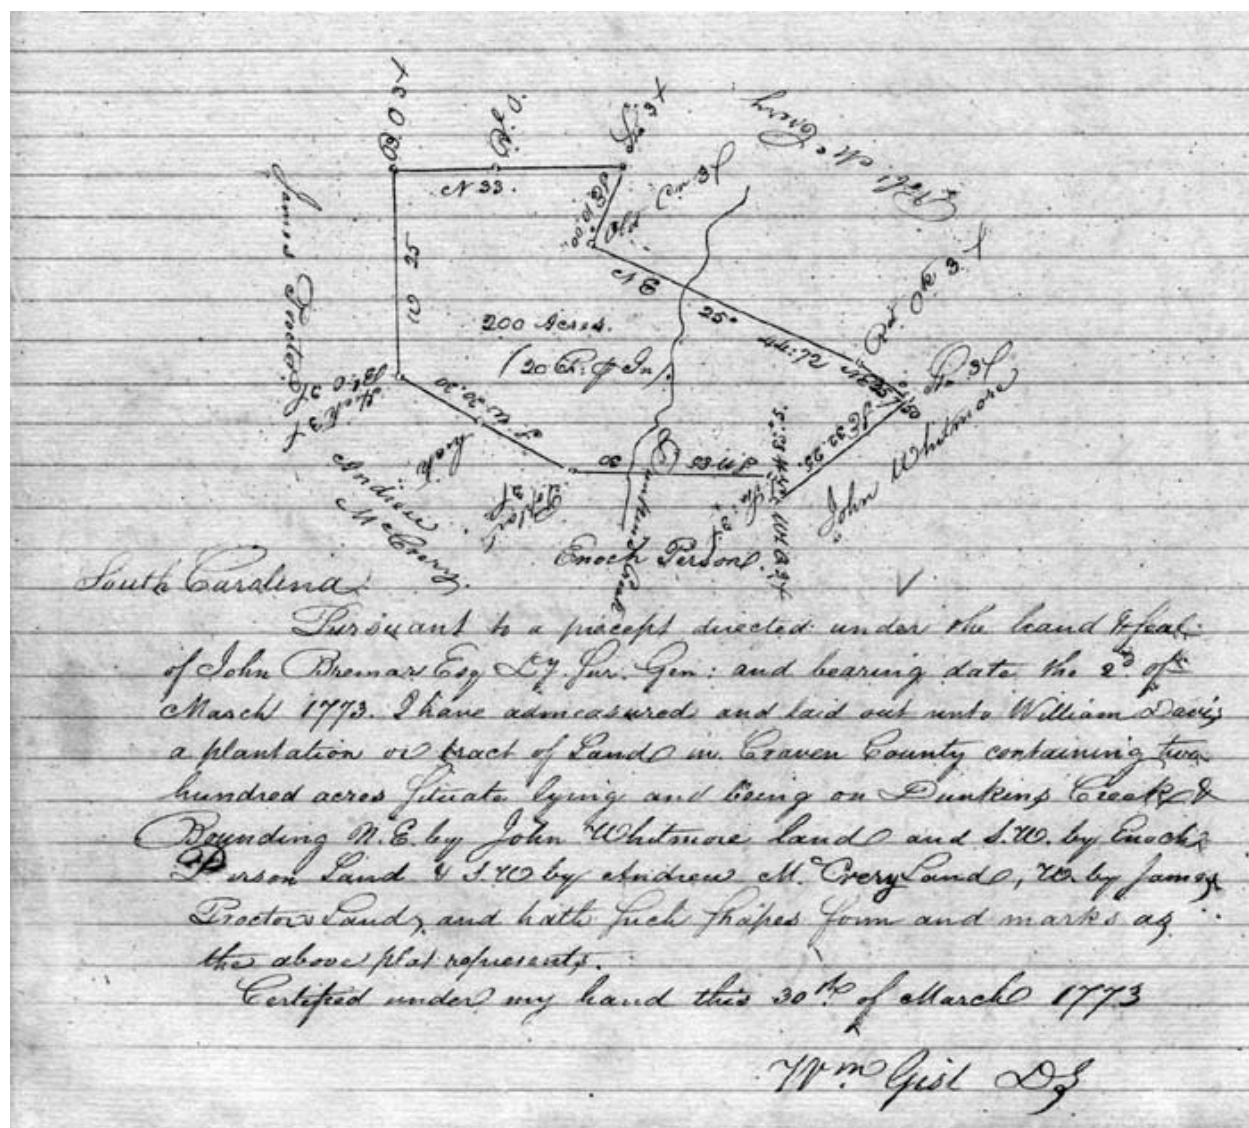 B O 3X
R. O.
3X
N 33.
Robt. McCrery
James Proctor
W 25
Old
Pn 3X
N E
25°
44:72
Red Ok 3X
200 Acres.
(20 Ch: p In)
Po 3X
John Whitmore
SE 32.25.
B O 3X
3X
S W 20.20
Andrew
McCrery
30
Dunkins Creek
Enoch Person
South Carolina
Pursuant to a precept directed under the hand & seal
of John Bremar Esq Dy. Sur. Gen: and bearing date the 2d of
March 1773. I have admeasured and laid out unto William Davis
a plantation or tract of Land in Craven County containing two
hundred acres Situate lying and being on Dunkins Creek &
Bounding N.E. by John Whitmore land and S.W. by Enoch
Person Land & S.W by Andrew McCrery Land, W. by James
Proctors Land, and hath such shapes form and marks as
the above plat represents.
Certified under my hand this 30th of March 1773
Wm Gist DS